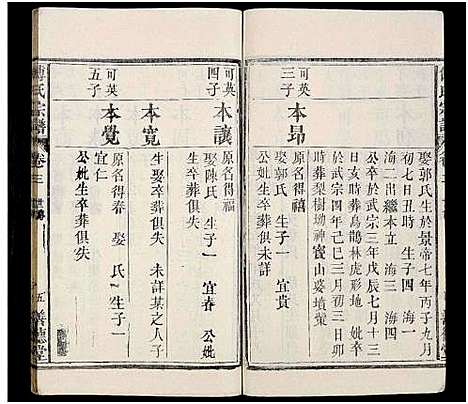 娶郭氏生於景帝七年丙子九月
初七日丑時 生子四 海一
海二出繼本立 海三 海四
公卒於武宗三年戊辰七月
日亥時葬鳥鵲林虎形地 娶卒
於武宗四年己巳三月初三日卯
時葬梨樹坳神窩山婆墳嶺
可英三子 本昂
原名得禧
娶郭氏 生子一 宜貴
公妣生卒葬俱未詳
可英四子 本讓
原名得福
娶陳氏 生子一 宜春 公妣
生卒葬俱失
本寬
生娶卒葬俱失 未詳某之人子
可英五子 本覺
原名得春 娶 氏 生子一
宜仁
公妣生卒葬俱失
傅氏宗譜 卷三 五 善德堂